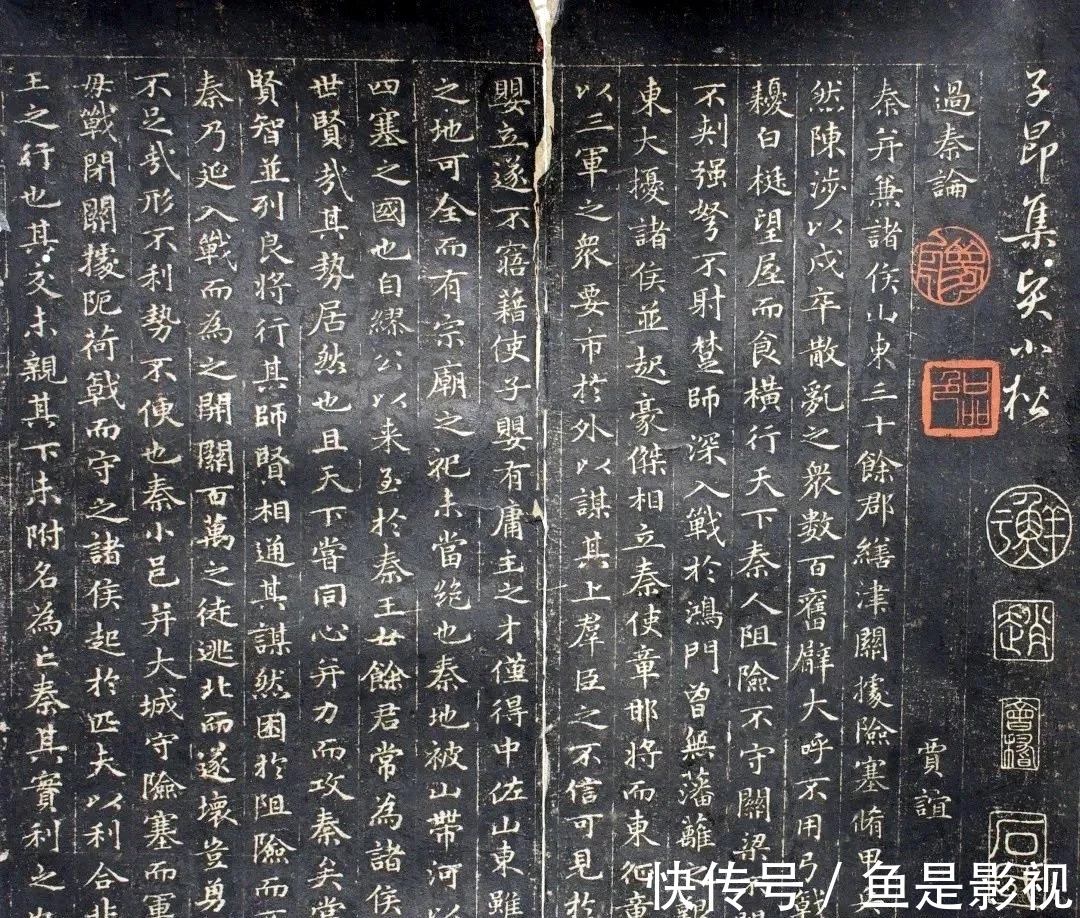 子昂集賢小楷
趙
過秦論 賈誼
秦并兼諸侯山東三十餘郡繕津關據險塞脩甲
然陳涉以戍卒散亂之衆數百奮臂大呼不用弓戟
耰白梃望屋而食橫行天下秦人阻險不守關梁不
不刺强弩不射楚師深入戰於鴻門曾無藩籬之
東大擾諸侯並起豪傑相立秦使章邯將而東征章
以三軍之衆要市於外以謀其上羣臣之不信可見於
嬰立遂不寤藉使子嬰有庸主之才僅得中佐山東雖
之地可全而有宗廟之祀未當絶也秦地被山帶河以
四塞之國也自繆公以来至於秦王廿餘君常為諸侯
世賢哉其勢居然也且天下嘗同心并力而攻秦矣當
賢智並列良將行其師賢相通其謀然困於阻險而
秦乃延入戰而為之開關百萬之徒逃北而遂壞豈勇
不足哉形不利勢不便也秦小邑并大城守險塞而軍
毋戰閉關據阨荷戟而守之諸侯起於匹夫以利合非
王之行也其交未親其下未附名為亡秦其實利之
快传号 / 鱼是影视